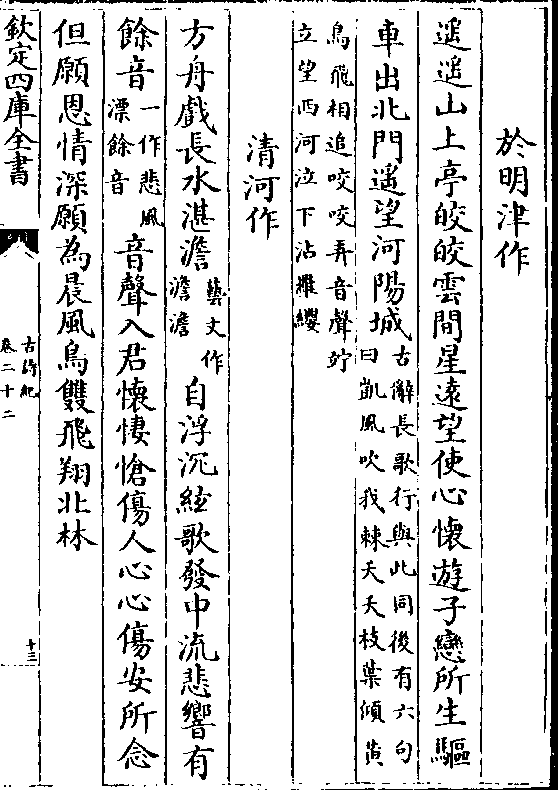 於明津作
遥遥山上亭皎皎雲間星遠望使心懷遊子戀所生驅
車出北門遥望河陽城古辭長歌行與此同後有六句曰凱風吹我棘夭夭枝葉傾黄
鳥飛相追咬咬弄音聲竚立望西河泣下沾羅纓
清河作
方舟戲長水湛澹藝文作澹澹自浮沉絃歌發中流悲響有
餘音一作悲風漂餘音音聲入君懷悽愴傷人心心傷安所念
但願恩情深願為晨風鳥雙飛翔北林
欽定四庫全書
古詩紀
卷二十二
十三